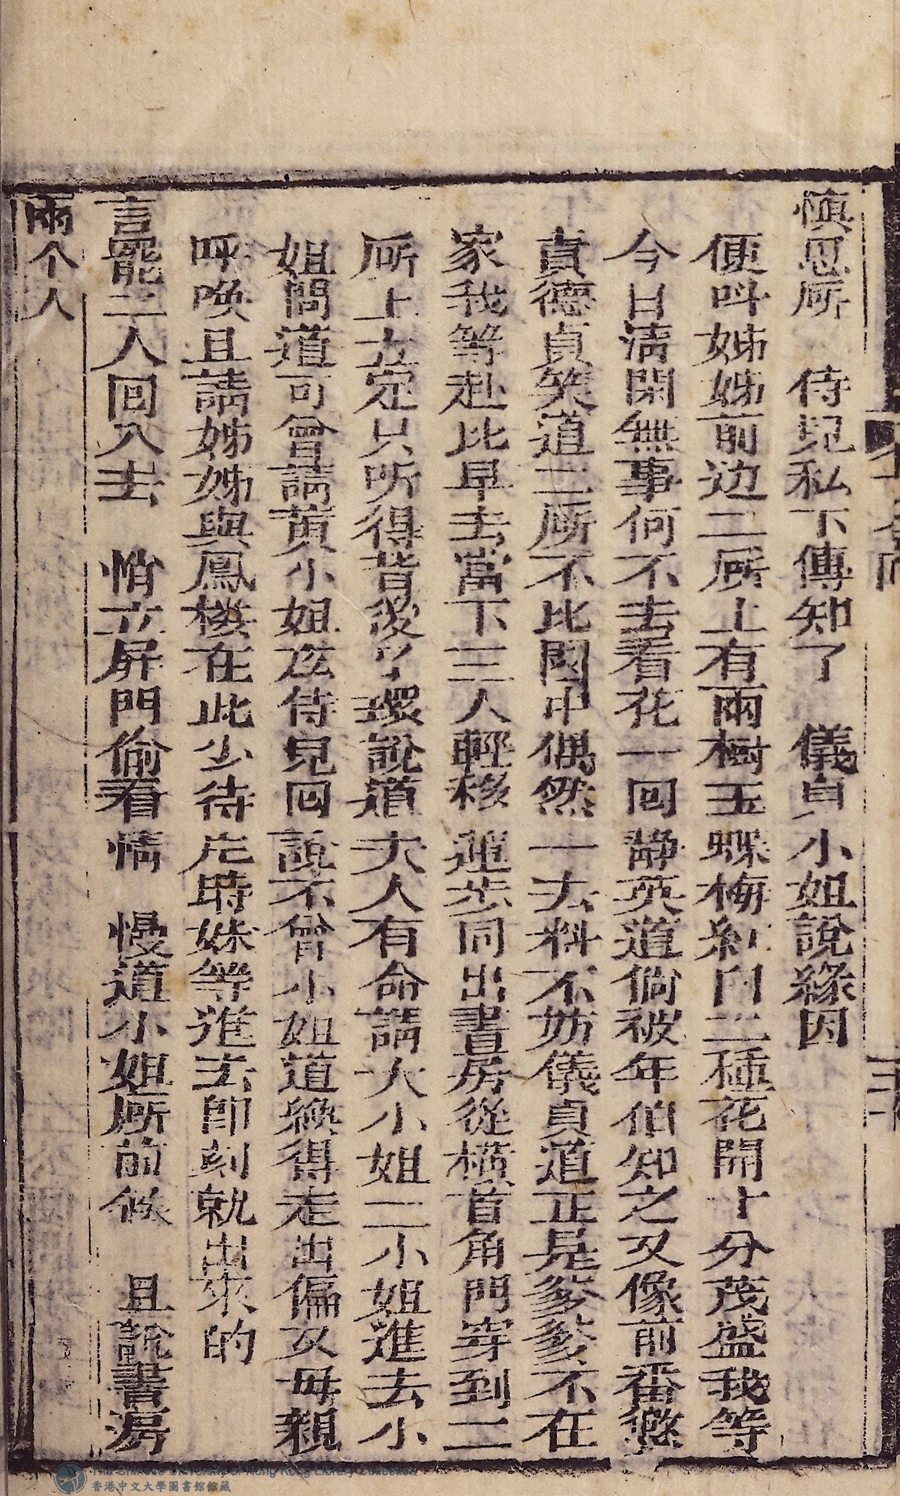 慎思所　侍児私下傳知了　儀貞小姐說緣因
便呌姊姊前边二𠩄上有兩樹玉蝶梅紅白二種花開十分茂盛我等
今日清閑無事何不去看花一回静英道倘被年伯知之又像前番慾
責德貞笑道二𠩄不比園中偶然一去料不妨儀貞道正是爹爹不在
家我等赴此早去當下三人輕移蓮步同出書房從横首角門穿到二
𠩄上立定只听得背後丫環說道夫人有命請大小姐二小姐進去小
姐問道可曾請黄小姐庅侍見回說不曾小姐道緣得走出偏又毋親
呼喚且請姊姊與鳳楼在此少待片時妹等進去即刻就出來的
言罷二人回入去　悄立屏門偷看情　慢道小姐𠩄前候　且說書房
兩个人
香港中文大學圖書館館藏
The Chinese University of Hong Kong Library Collection